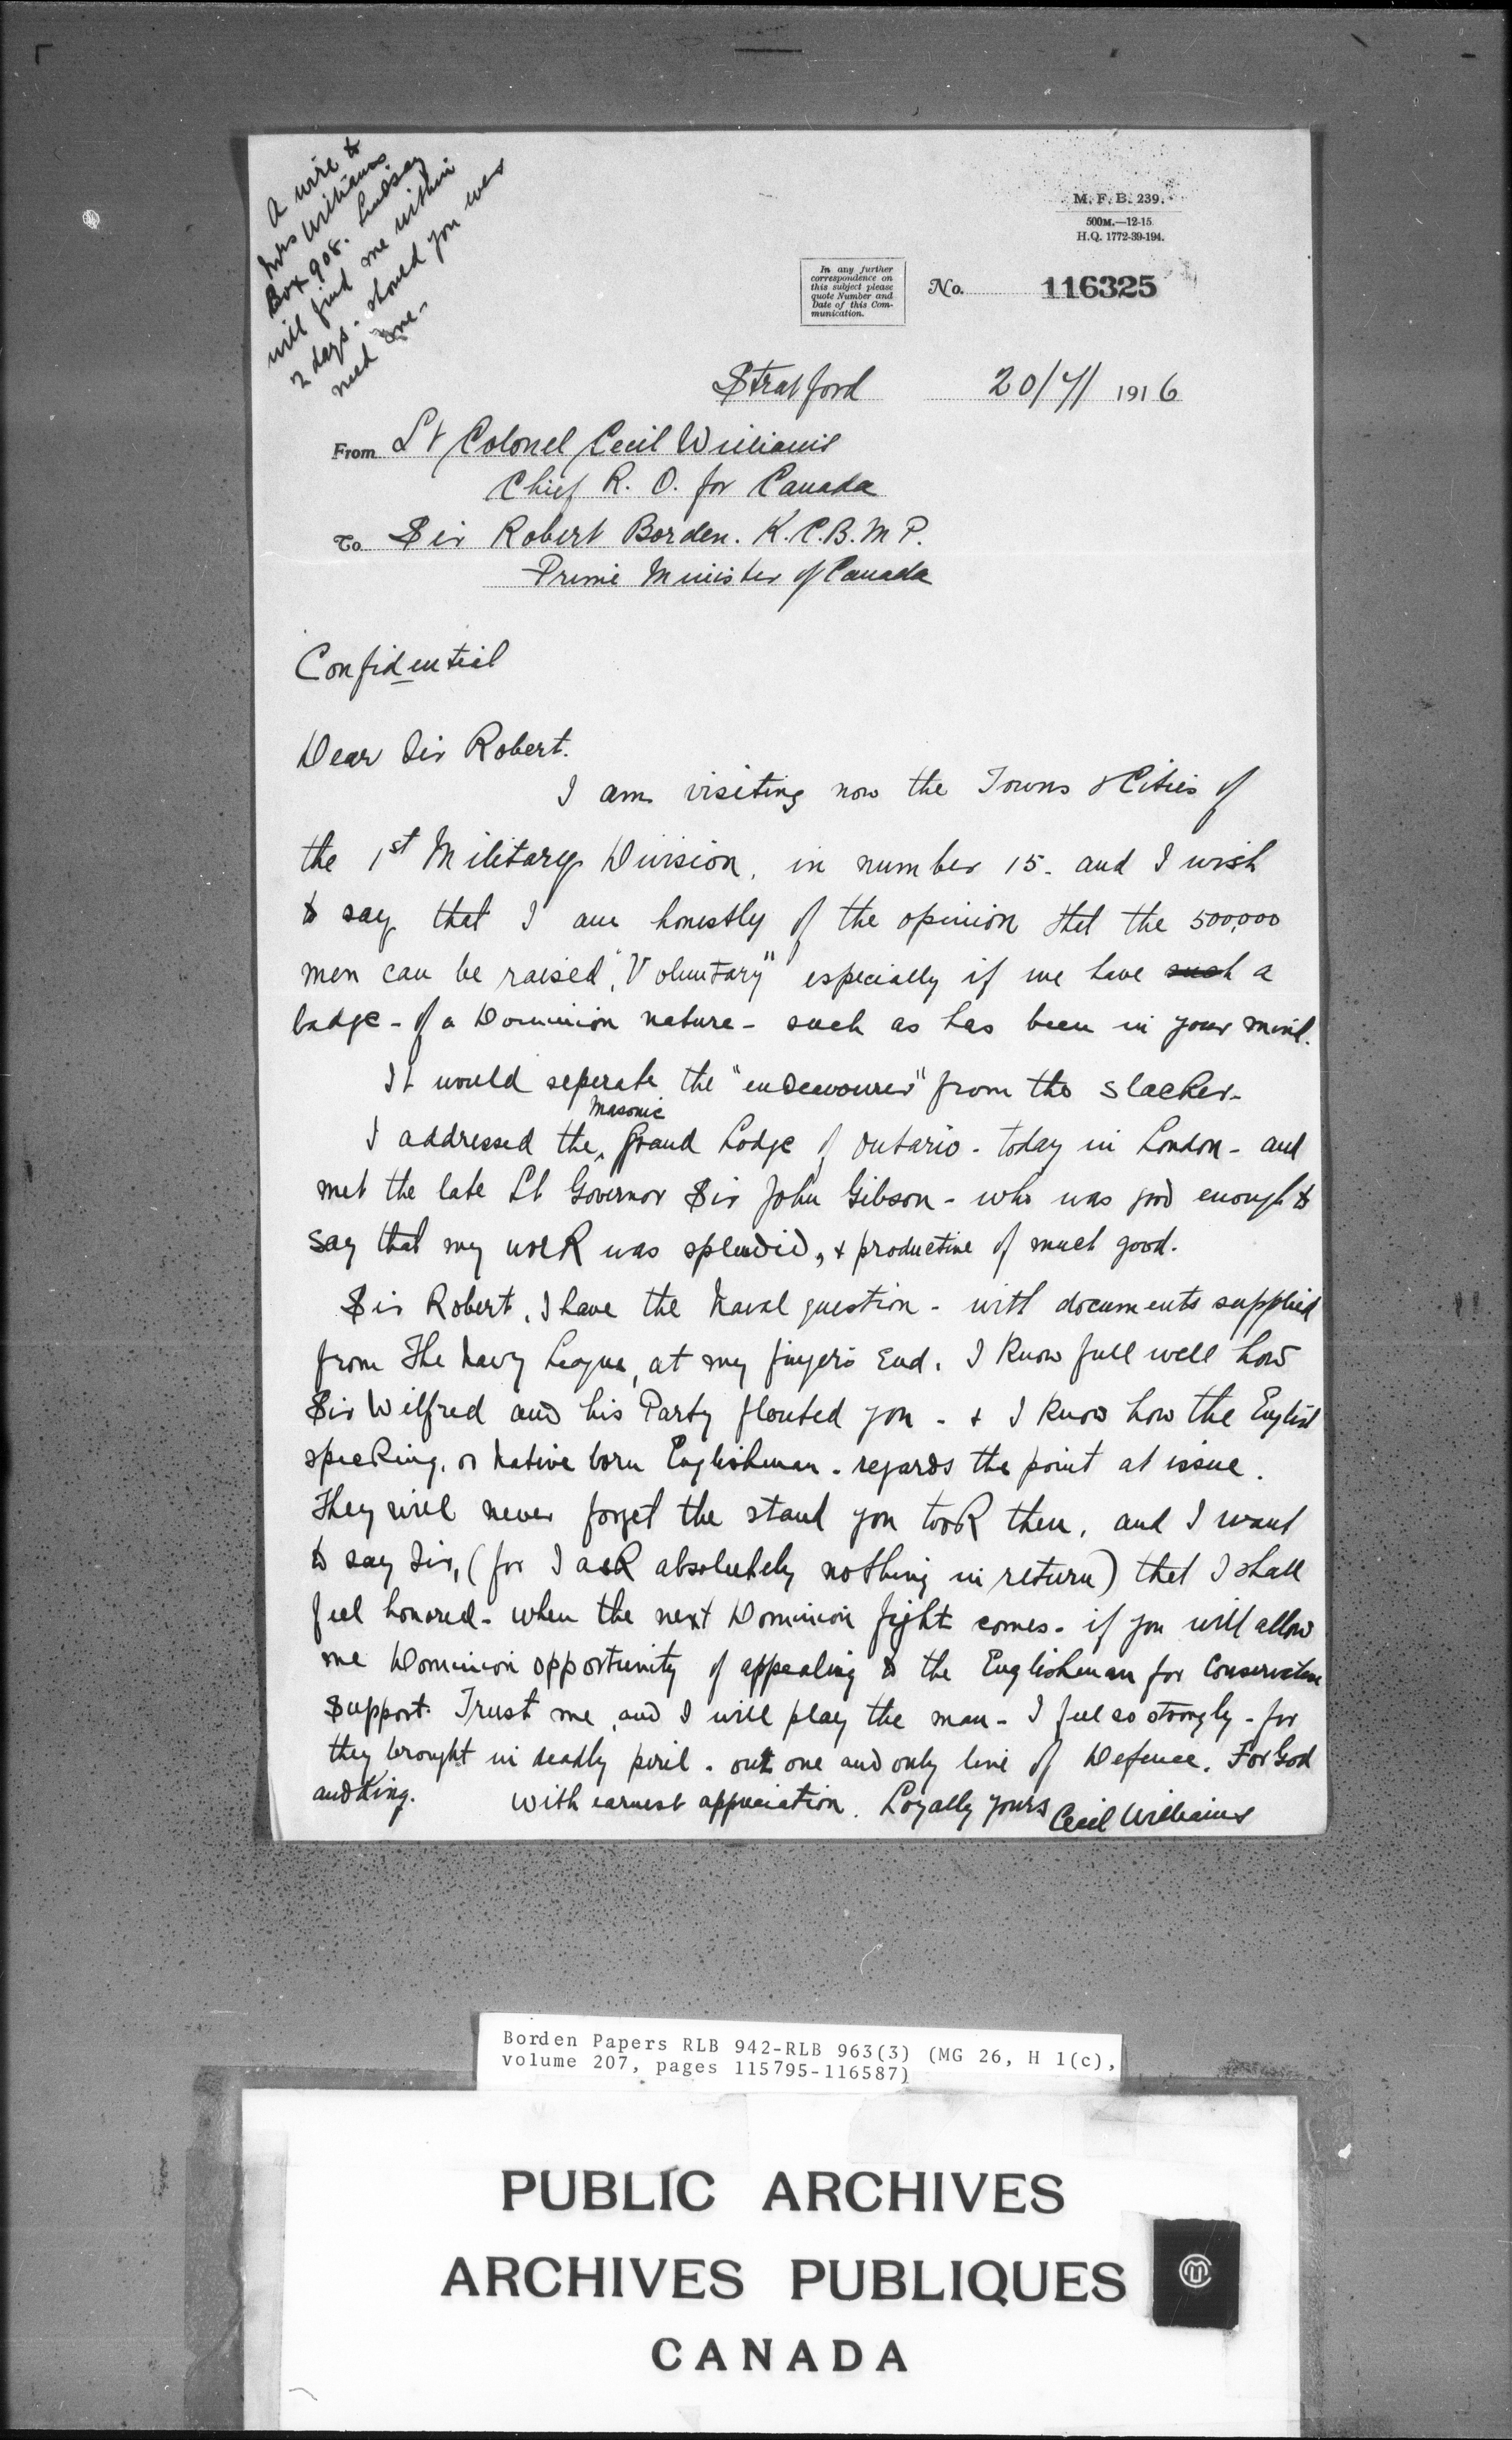 A wire to
Mrs Williams
Box 908. Lindsay
will find me within
2 days. should you ever
need me-
M. F. B. 239.
500M.—12-15.
H.Q. 1772-39-194.
In any further
correspondence on
this subject please
quote Number and
Date of this Com-
munication.
No. 116325
Stratford 20/7/ 1916
From Lt Colonel Cecil Williams
Chief R. O. for Canada
To Sir Robert Borden. K.C.B. M P.
Prime Minister of Canada
Confidential
Dear Sir Robert.
I am visiting now the Towns & Cities of
the 1st Military Division, in number 15. and I wish
to say that I am honestly of the opinion that the 500,000
men can be raised, "Voluntary" especially if we have such a
badge - of a Dominion nature - such as has been in your mind.
It would seperate the "endeavourer" from the slacker-
I addressed the Masonic Grand Lodge of Ontario - today in London - and
met the late Lt Governor Sir John Gibson - who was good enough to
say that my work was splendid, & productive of much good.
Sir Robert, I have the Naval question - with documents supplied
from The Navy League, at my finger's end. I know full well how
Sir Wilfred and his Party flouted you - & I know how the English
speaking, or native born Englishman - regards the point at issue.
They will never forget the stand you took then, and I want
to say Sir, (for I ask absolutely nothing in return) that I shall
feel honored - when the next Dominion fight comes - if you will allow
me Dominion opportunity of appealing to the Englishman for Conservative
support. Trust me, and I will play the man - I feel so strongly - for
they brought in deadly peril - our one and only line of Defence. For God
and King. With earnest appreciation. Loyally yours Cecil Williams
Borden Papers RLB 942-RLB 963(3) (MG 26, H 1(c),
volume 207, pages 115795-116587)
PUBLIC ARCHIVES
ARCHIVES PUBLIQUES
CANADA